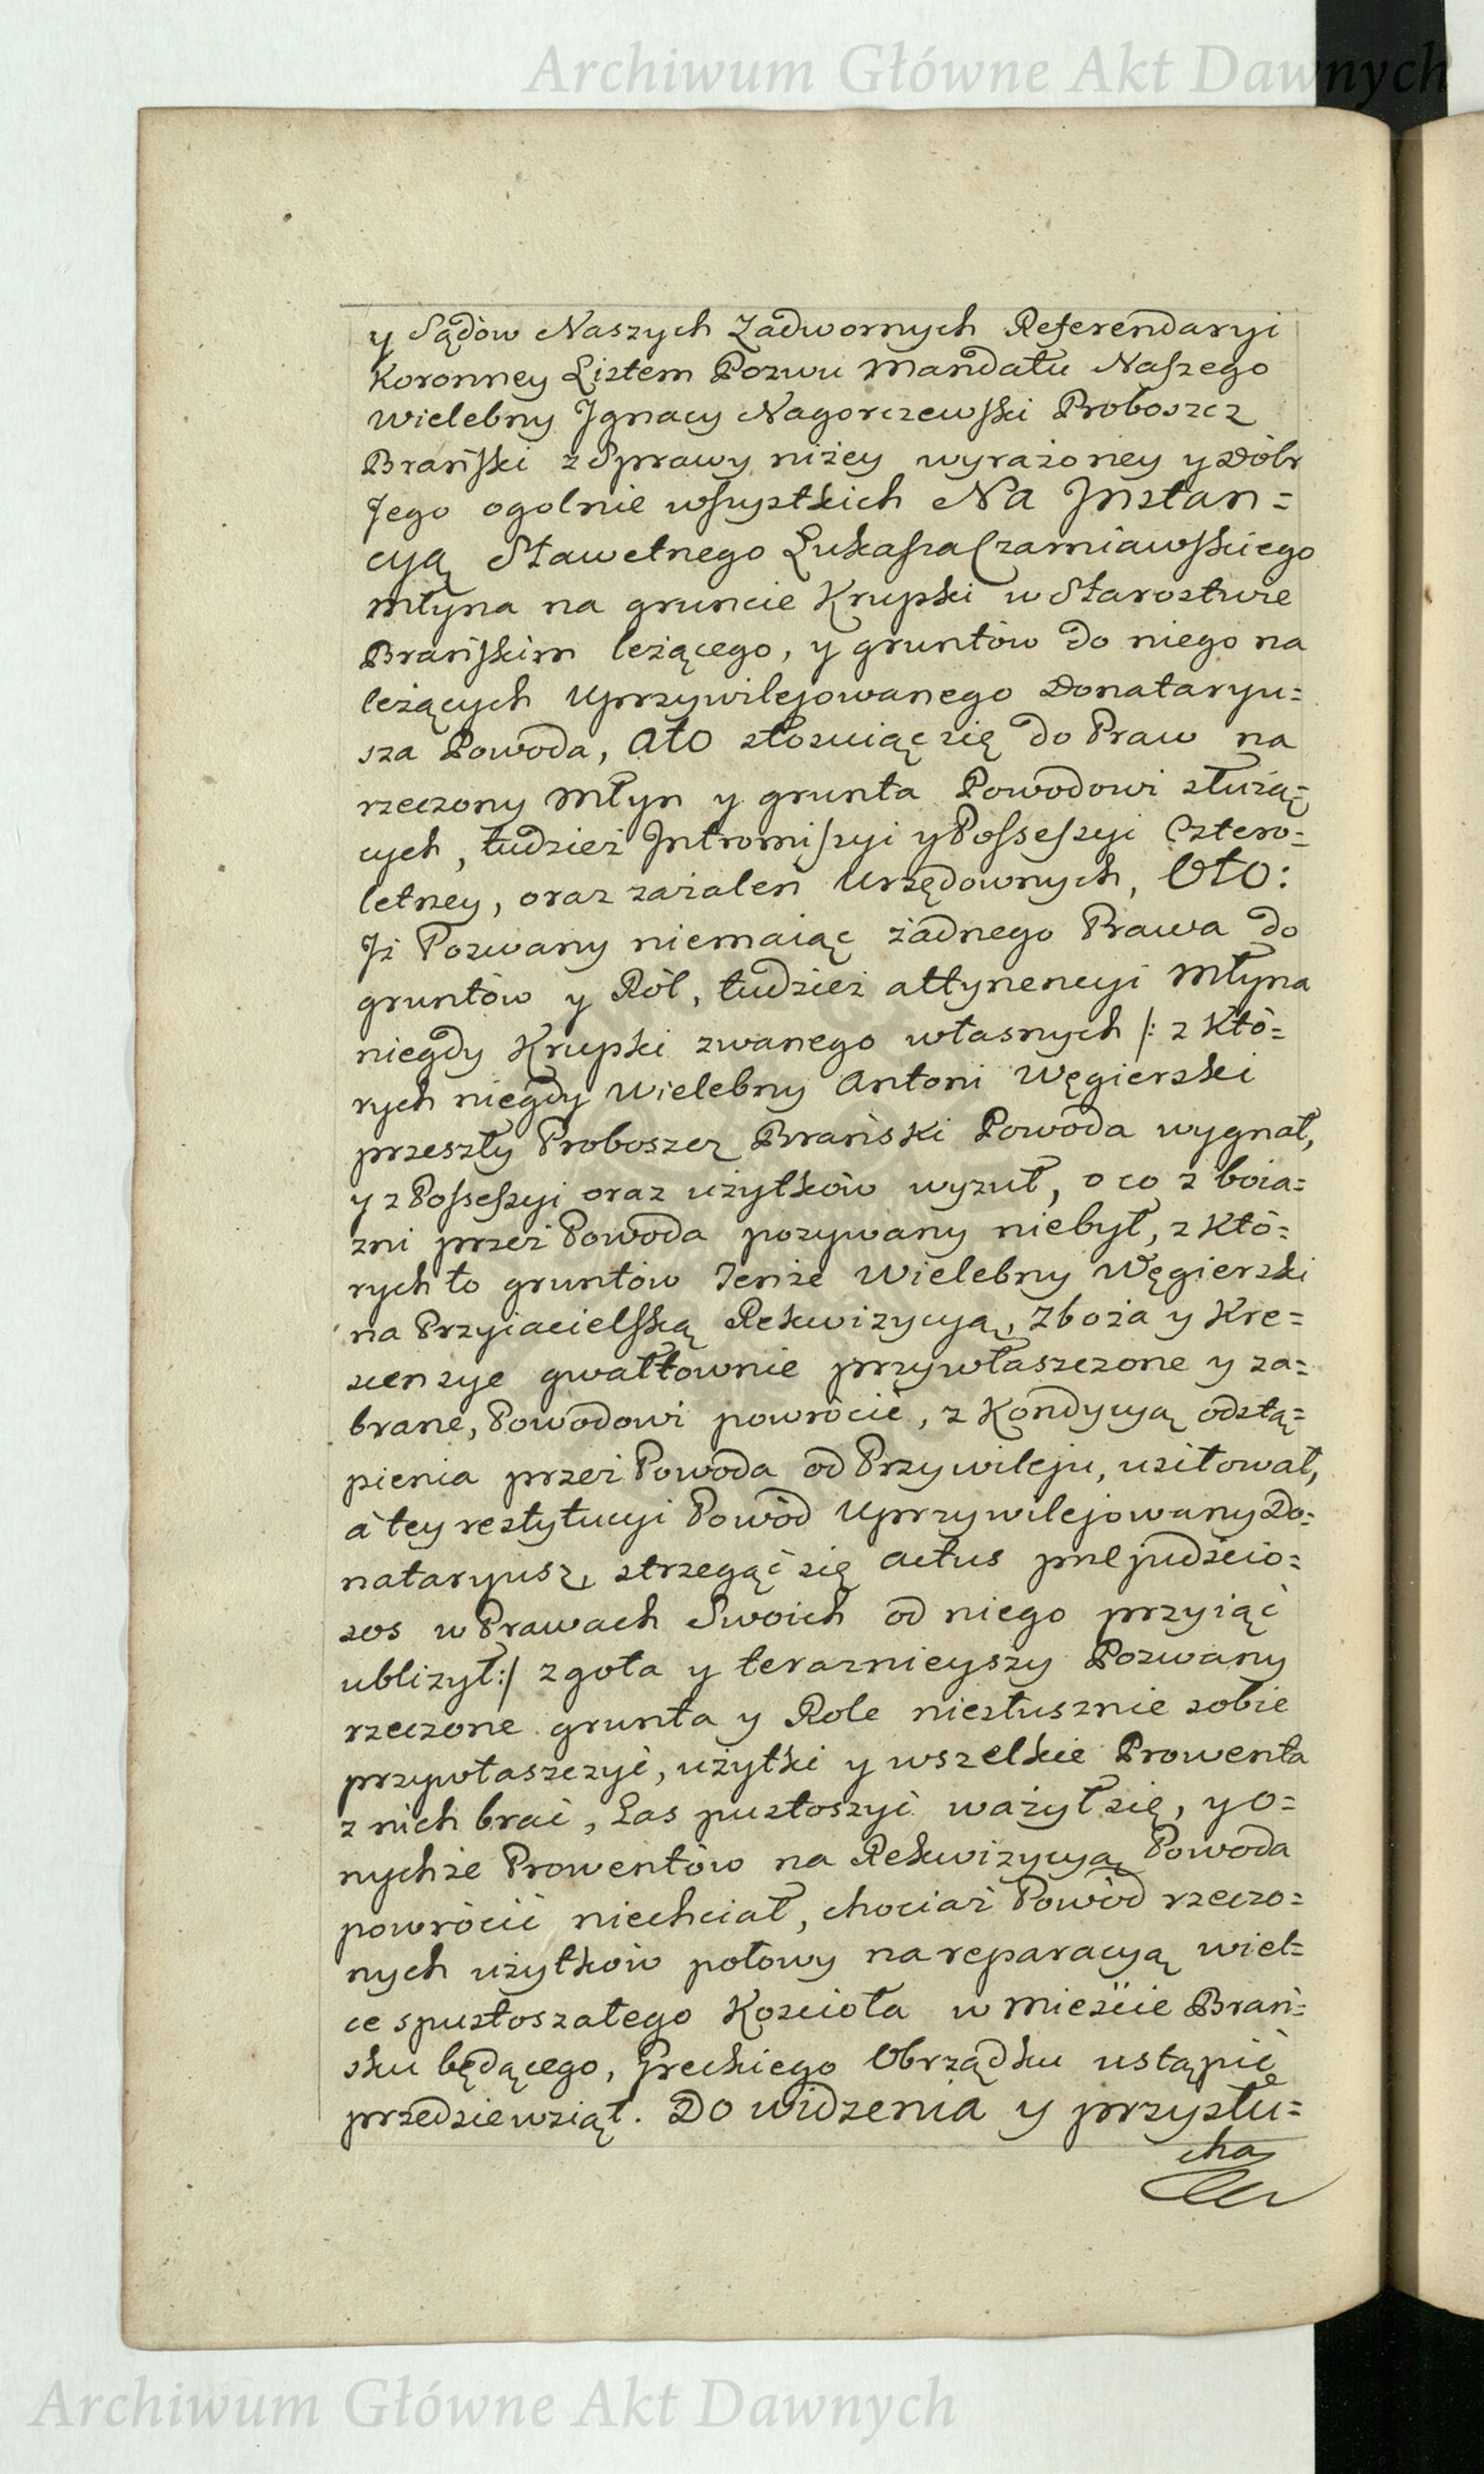 Archiwum Główne Akt Dawnych
y Sądów Naszych Zadwornych Referendaryi
Koronney Listem Pozwu Mandatu Naszego
Wielebny Jgnacy Nagorczewski Proboszcz
Brański z Sprawy niżey wyrażoney y Dóbr
Jego ogolnie wszystkich Na Jnstan=
cyą Sławetnego Łukasza Czarniawskiego
Młyna na gruncie Krupski w Starostwie
Brańskim leżącego, y gruntów do niego na
leżących Uprzywilejowanego Donataryu=
sza Powoda, Ato stosuiąc się do Praw na
rzeczony Młyn y grunta Powodowi służą=
cych, tudzież Jntromissyi y Possessyi Cztero=
letney, oraz zażaleń Urzędownych, Oto:
Jż Pozwany niemaiąc żadnego Prawa do
gruntów y Ról, tudzież attynencyi Młyna
niegdy Krupski zwanego własnych /: z Któ=
rych niegdy Wielebny Antoni Węgierski
przeszły Proboszcz Brański Powoda wygnał,
y z Possessyi oraz użytków wyzuł, o co z boia=
zni przez Powoda pozywany niebył, z Któ=
rych to gruntów Tenże Wielebny Węgierski
na Przyiacielską Rekwizycyą, Zboża y Kre=
scensye gwałtownie przywłaszczone y za=
brane, Powodowi powrócić, z Kondycyą odstą=
pienia przez Powoda od Przywileju, usiłował,
a tey restytucyi Powód Uprzywilejowany Do=
nataryusz, strzegąć się actus prejudicio=
sos w Prawach Swoich od niego przyiąć
ubliżył:/ zgoła y teraznieyszy Pozwany
rzeczone grunta y Role niesłusznie sobie
przywłaszczyć, użytki y wszelkie Prowenta
z nich brać, Las pustoszyć ważył się, y o=
nychże Prowentów na Rekwizycyą Powoda
powrócić niechciał, chociaż Powód rzeczo=
nych użytków połowy na reparacyą wiel=
ce spustoszałego Kościoła w Mieście Brań=
sku będącego, Greckiego Obrządku ustąpić
przedsiewziął. Do widzenia y przysłu=
cha
Archiwum Główne Akt Dawnych